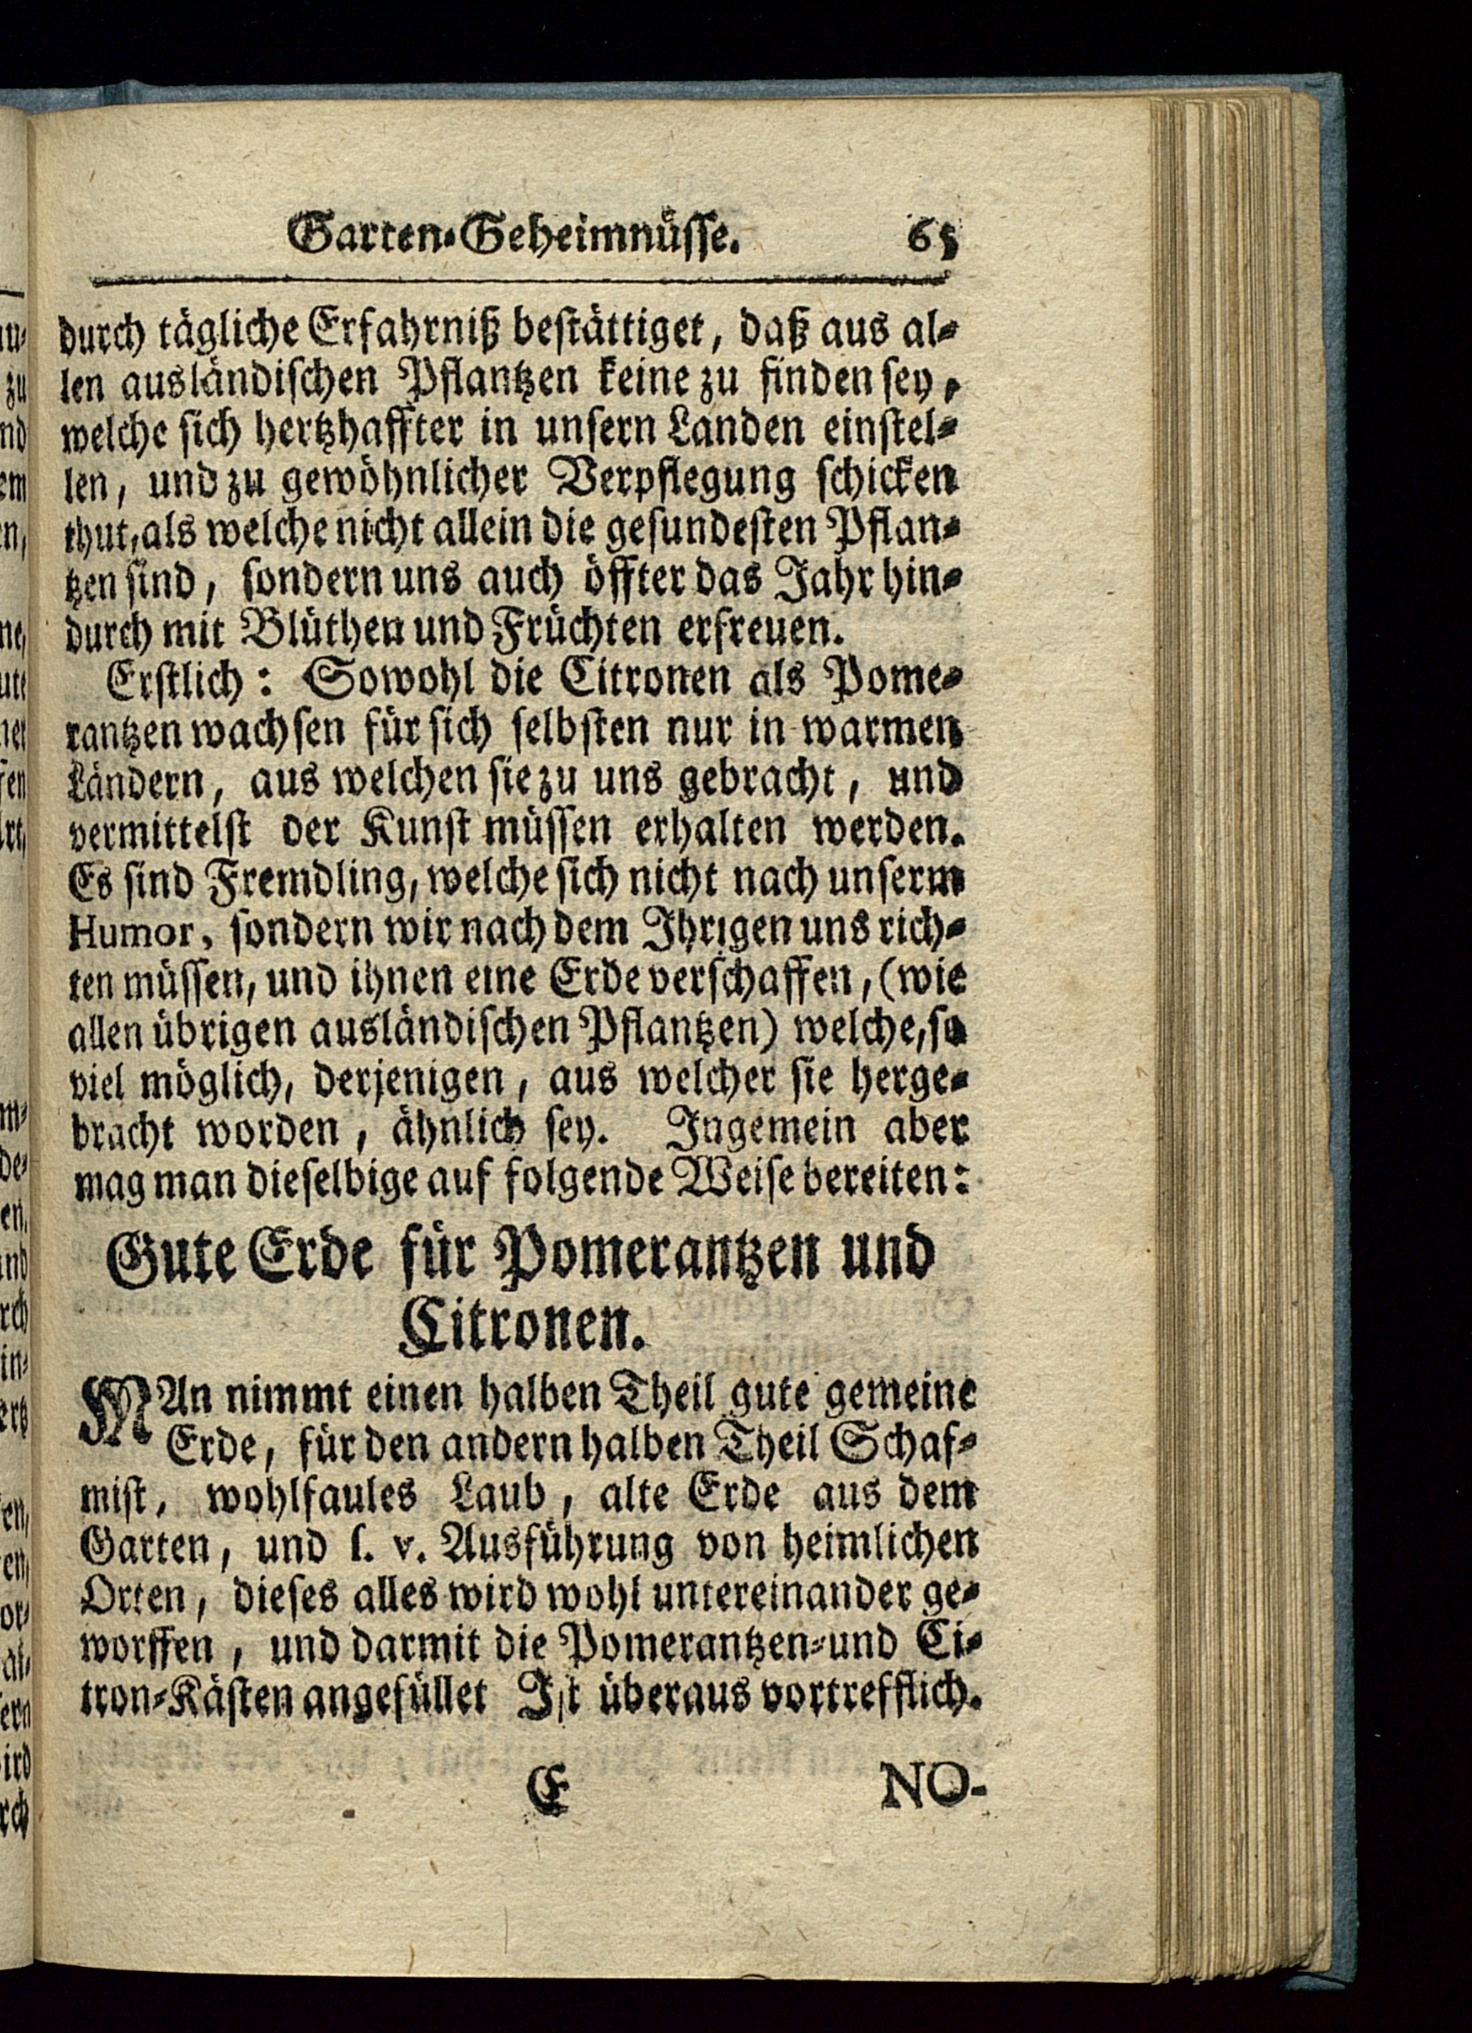 Garten-Geheimnüsse. 65
durch tägliche Erfahrniß bestättiget, daß aus al-
len ausländischen Pflantzen keine zu finden sey,
welche sich hertzhaffter in unsern Landen einstel-
len, und zu gewöhnlicher Verpflegung schicken
thut, als welche nicht allein die gesundesten Pflan-
tzen sind, sondern uns auch öffter das Jahr hin-
durch mit Blüthen und Früchten erfreuen.
Erstlich: Sowohl die Citronen als Pome-
rantzen wachsen für sich selbsten nur in warmen
Ländern, aus welchen sie zu uns gebracht, und
vermittelst der Kunst müssen erhalten werden.
Es sind Fremdling, welche sich nicht nach unserm
Humor, sondern wir nach dem Ihrigen uns rich-
ten müssen, und ihnen eine Erde verschaffen, (wie
allen übrigen ausländischen Pflantzen) welche, so
viel möglich, derjenigen, aus welcher sie herge-
bracht worden, ähnlich sey. Ingemein aber
mag man dieselbige auf folgende Weise bereiten:
Gute Erde für Pomerantzen und
Citronen.
MAn nimmt einen halben Theil gute gemeine
Erde, für den andern halben Theil Schaf-
mist, wohlfaules Laub, alte Erde aus dem
Garten, und s. v. Ausführung von heimlichen
Orten, dieses alles wird wohl untereinander ge-
worffen, und darmit die Pomerantzen- und Ci-
tron-Kästen angefüllet Ist überaus vortrefflich.
E NO-